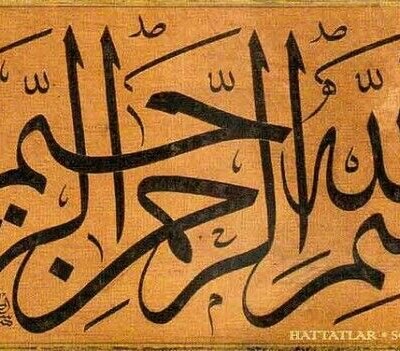 بسم الله الرحمن الرحيم
HATTATLAR • S